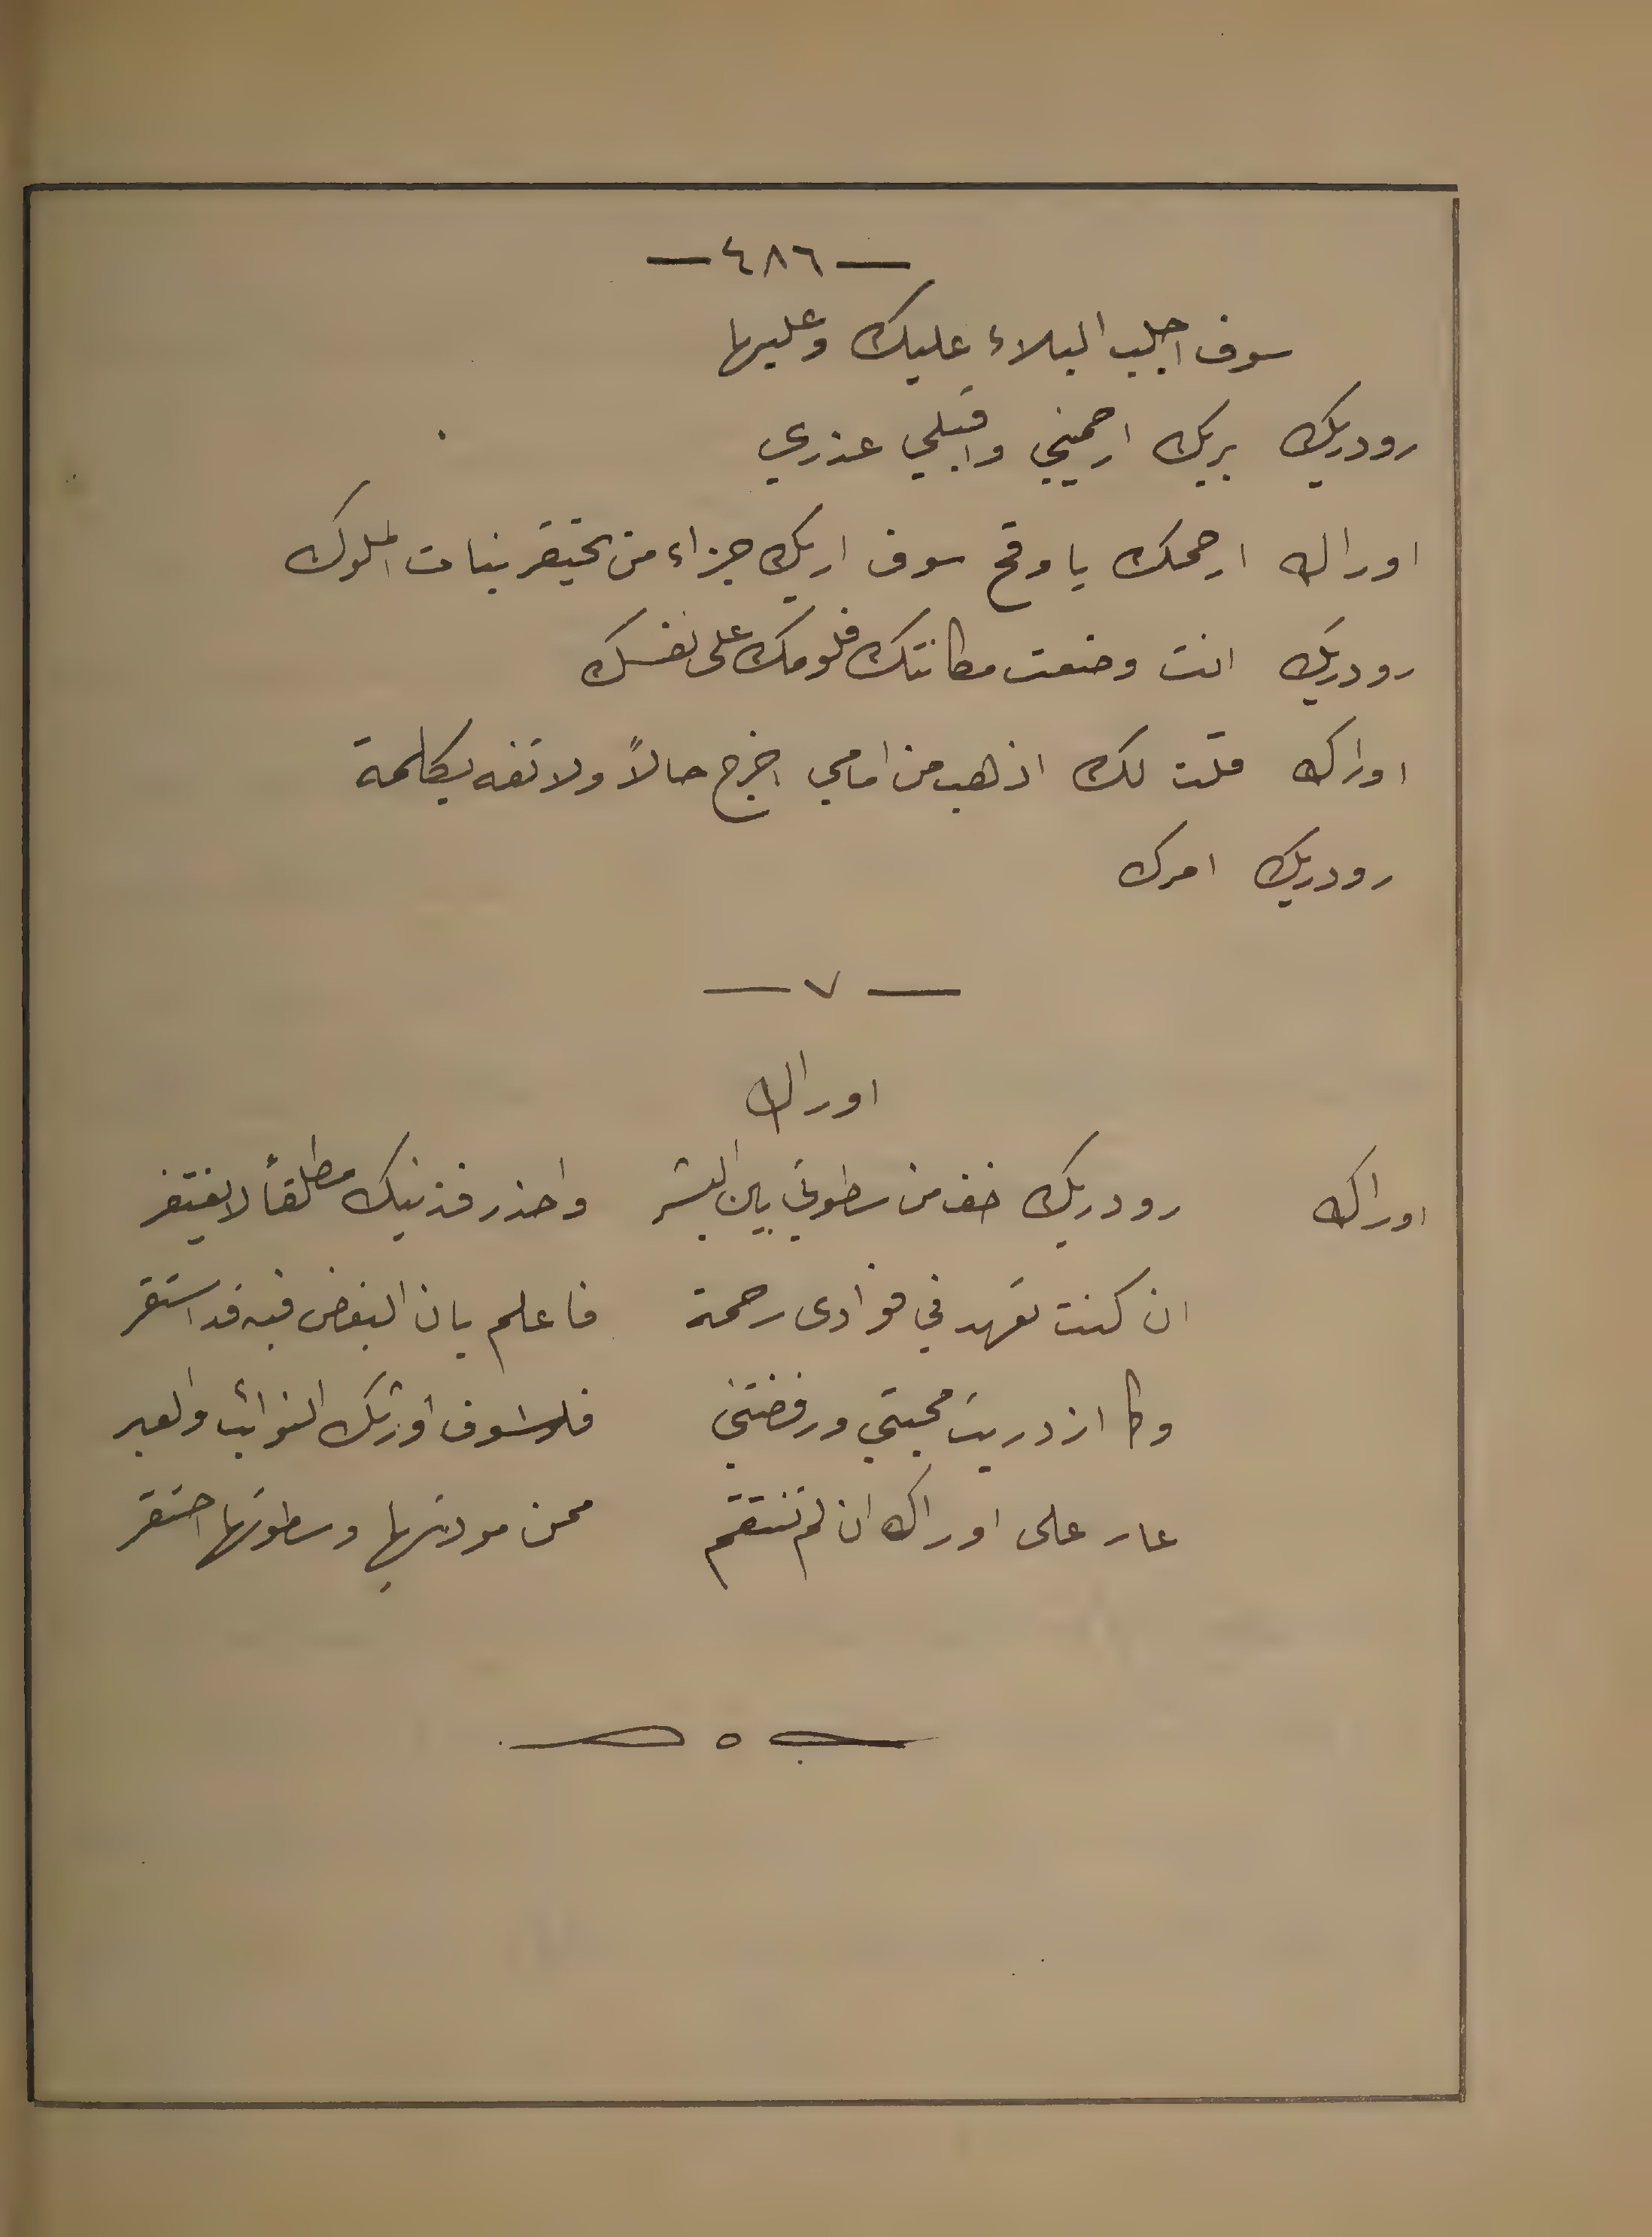 — ٤٨٦ —
سوف اجلب البلاء عليك وعليها
رودريك بربك ارحميني واقبلي عذري
اوراك ارحمك يا وقح سوف اريك جزاء من يحتقر بنات الملوك
رودريك انت وضعت مكانتك فلومك على نفسك
اوراك قلت لك اذهب من امامي اخرج حالاً ولا تفه بكلمة
رودريك امرك
— ٧ —
اوراك
اوراك رودريك خف من سطوتي بين البشر واحذر فذنبك مطلقاً لا يغتفر
ان كنت تعهد في فوادى رحمة فاعلم بان البغض فيه قد استقر
وكما ازدريت محبتي ورفضتني فلسوف اورثك النوائب والعبر
عار على اوراك ان لم تنتقم ممن مودتها وسطوتها احتقر